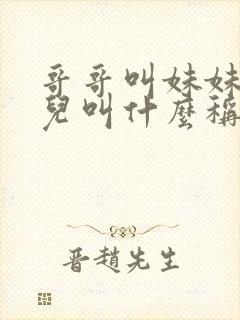 哥哥叫妹妹
兒叫什麼稱
晉趙先生